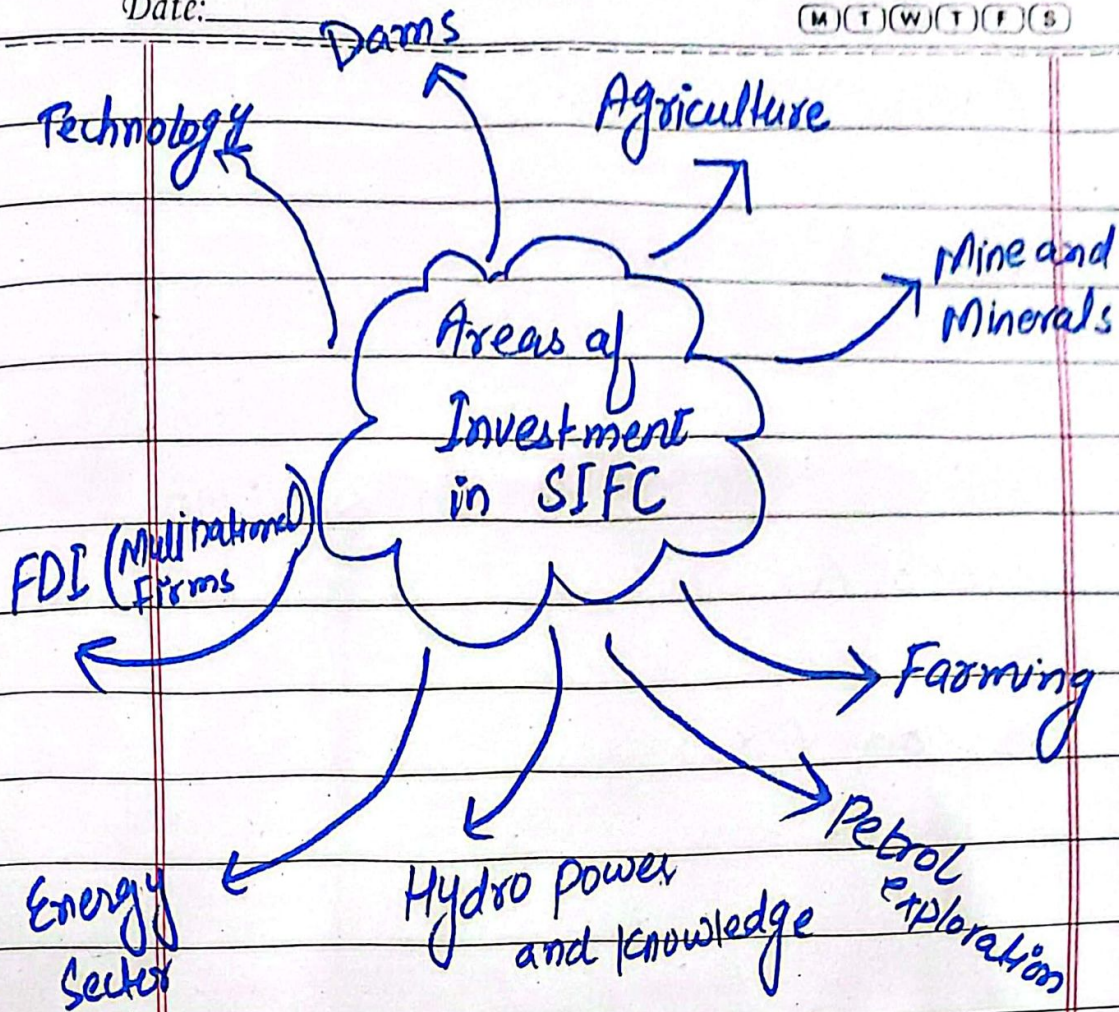 Date:
M T W T F S
Dams
Technology
Agriculture
Mine and
Minerals
Areas of
Investment
in SIFC
FDI (Multinational)
Firms
Farming
Petrol
exploration
Energy
Sector
Hydro power
and knowledge